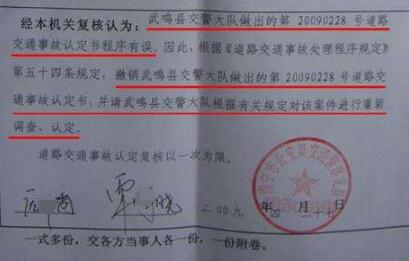 经本机关复核认为：武鸣县交警大队做出的第 20090228 号道路
交通事故认定书程序有误。因此，根据《道路交通事故处理程序规定》
第五十四条规定，撤销武鸣县交警大队做出的第 20090228 号道路交
通事故认定书，并请武鸣县交警大队根据有关规定对该案件进行重新
调查、认定。
道路交通事故认定复核以一次为限。
二00九 年 四 月 二十七日
一式多份，交各方当事人各一份，一份附卷。